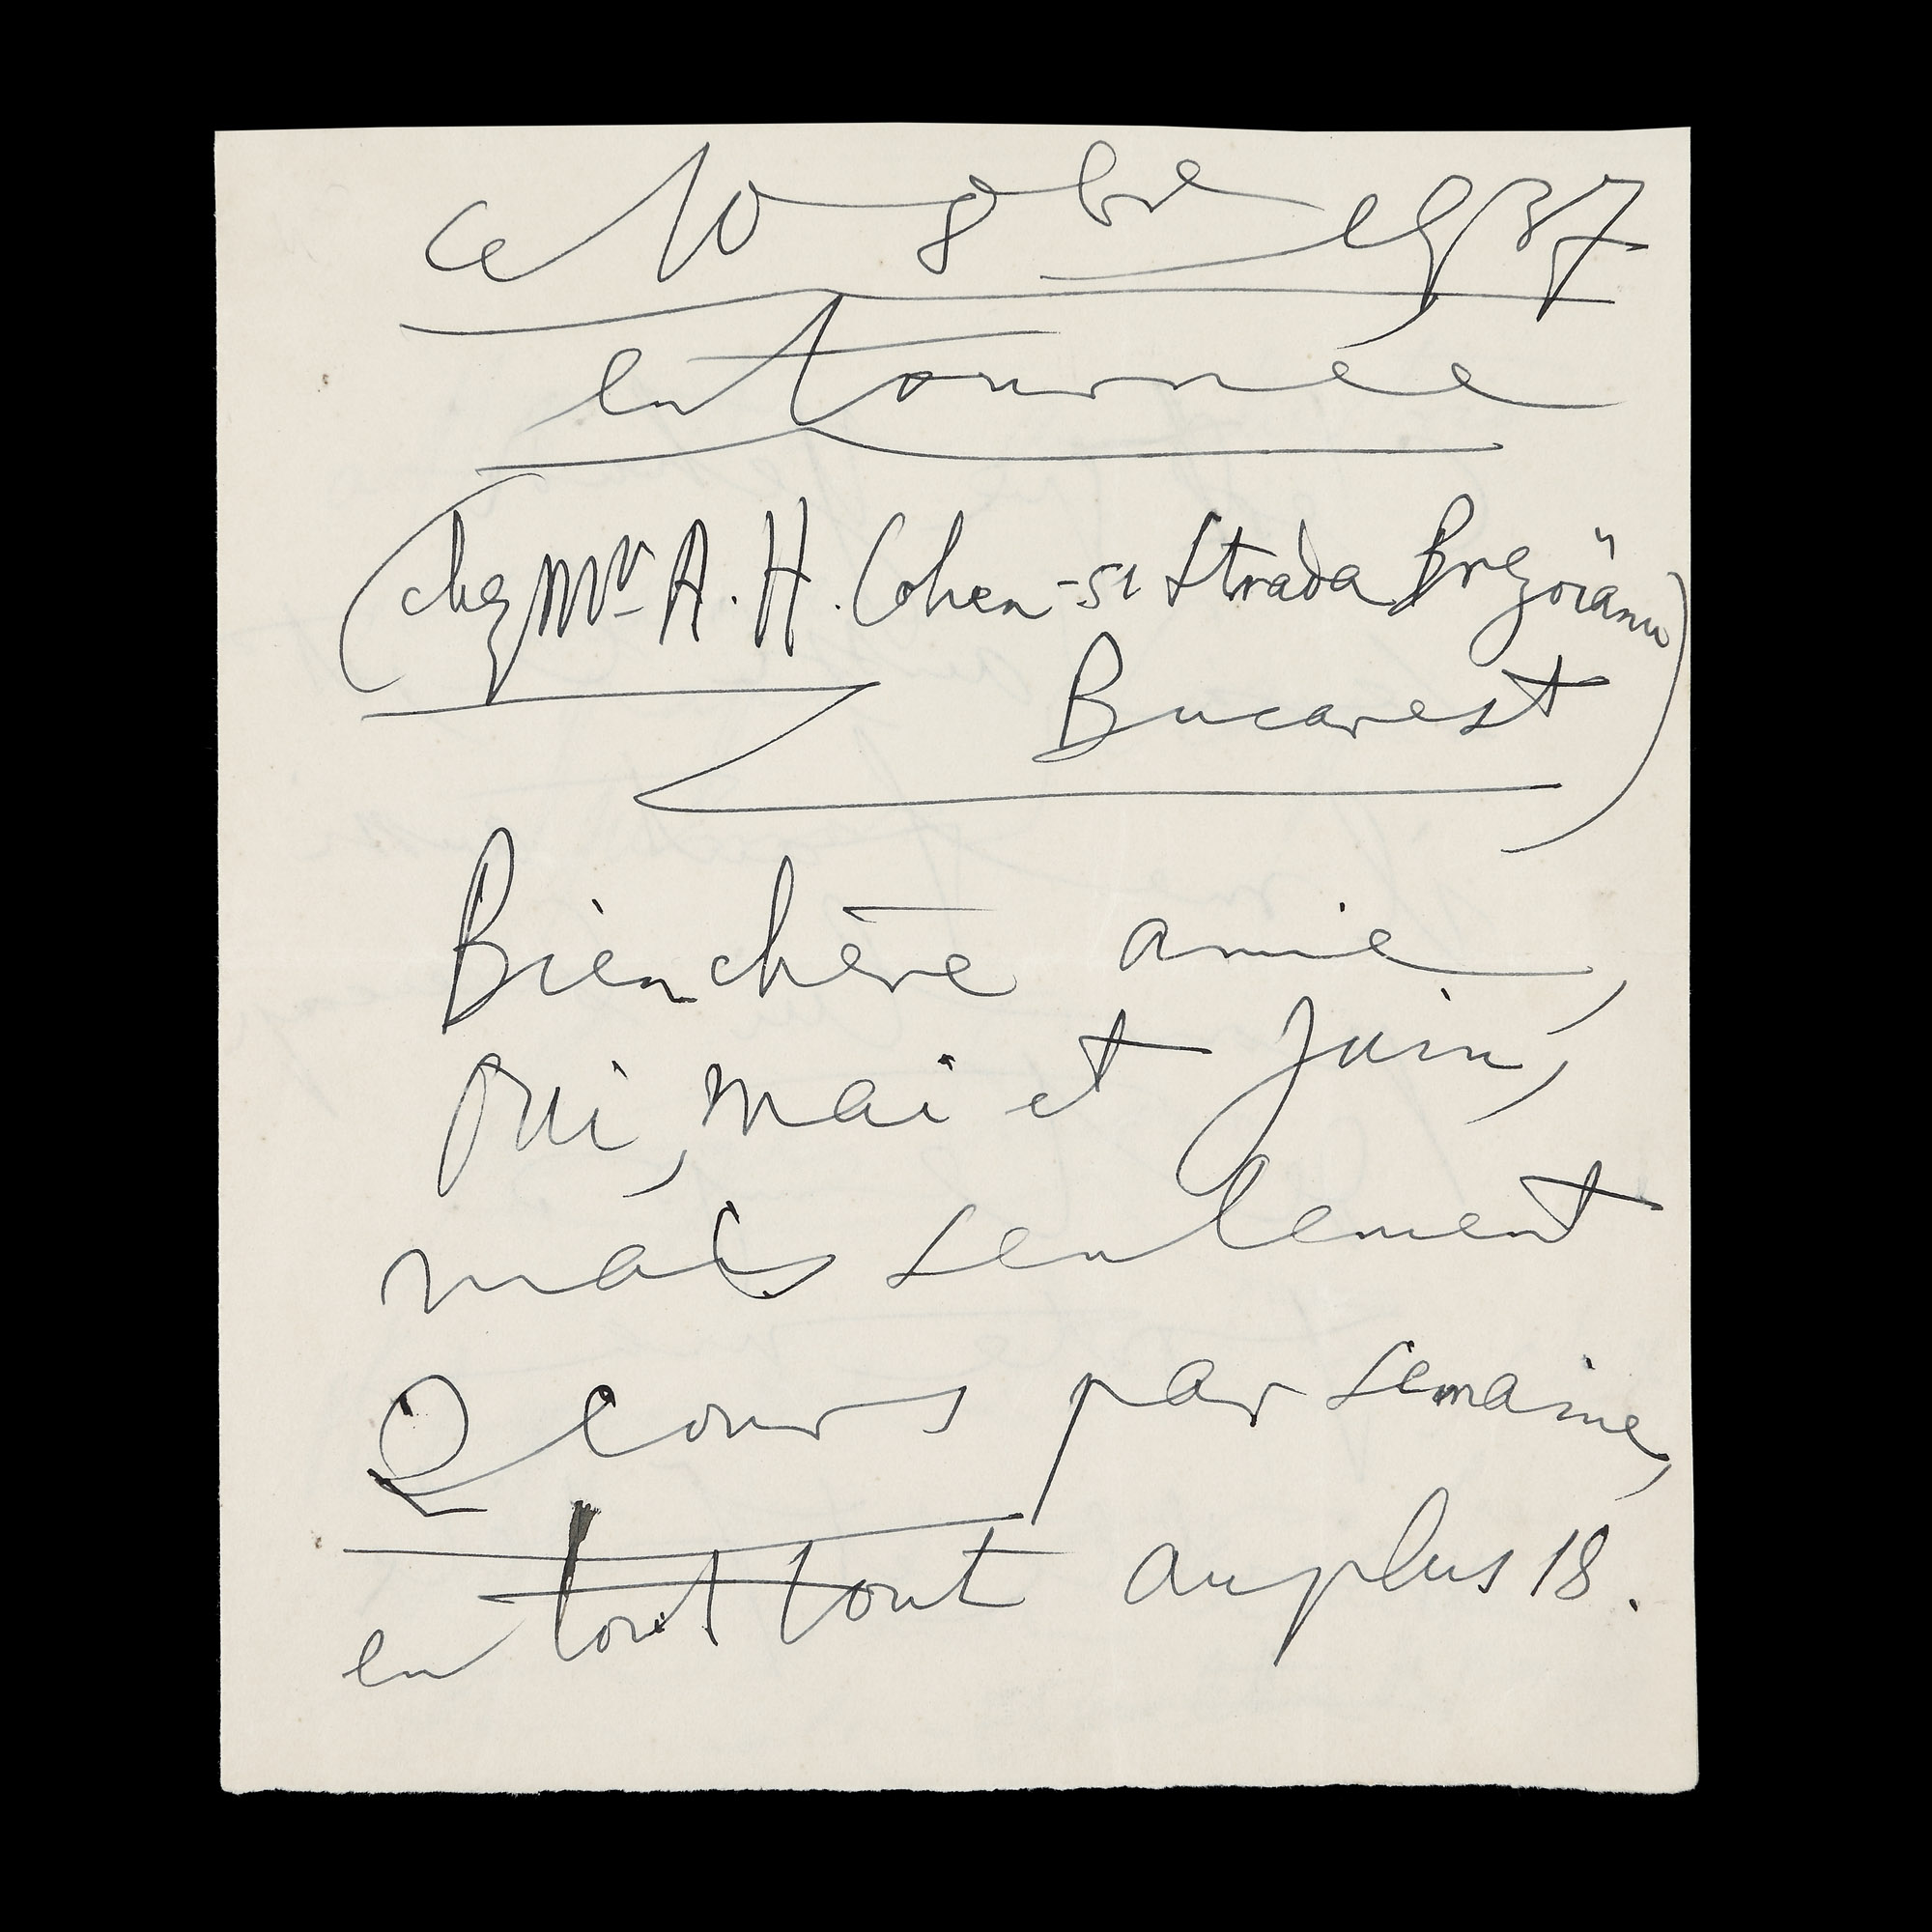 ce 10 8bre 1937
en tournée
(chez Mr A. H. Cohen - 51 Strada Brezoïanu
Bucarest)
Bien chère amie,
oui, mai et juin,
mais seulement
2 cours par semaine,
en tout tout au plus 18.